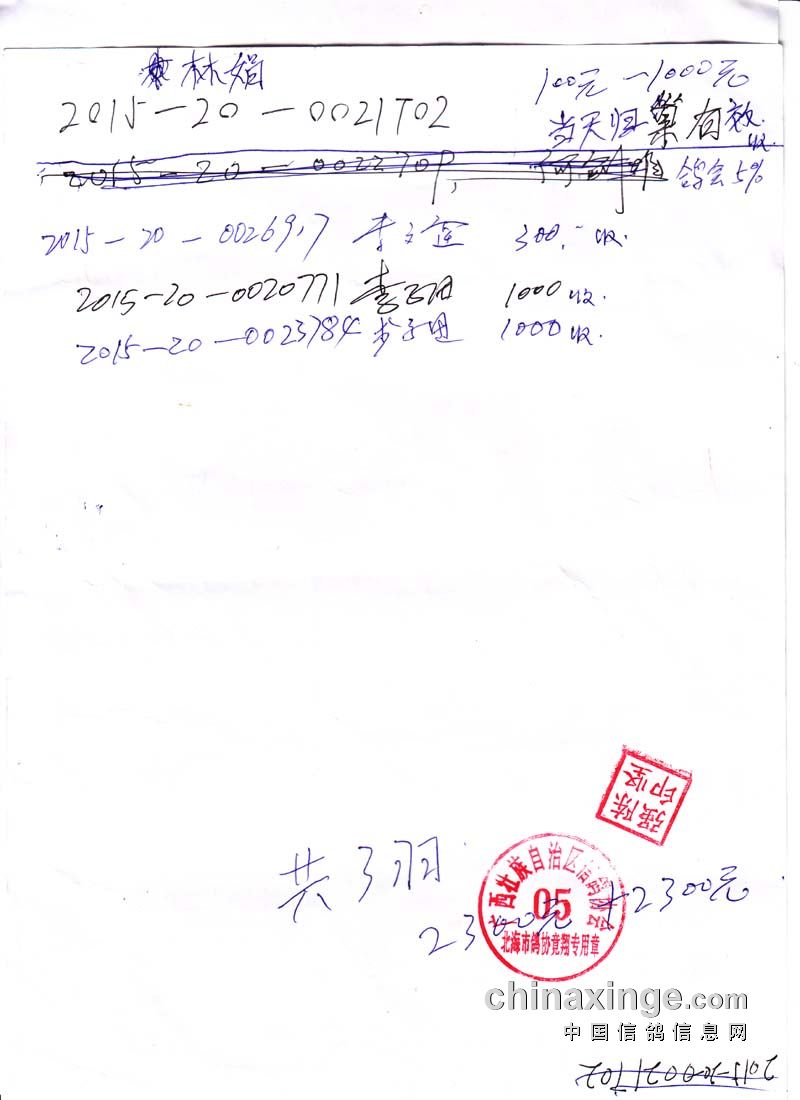 林娟
100元—1000元
2015—20—0021702
当天归巢有效
收
2015—20—002270
鸽会5%
2015—20—0026917 300.— 收.
2015—20—0020771 1000 收.
2015—20—0023784 1000 收.
陈坚强印
共3羽
2300元 2300元
广西壮族自治区信鸽协会
05
北海市鸽协竞翔专用章
chinaxinge.com
中国信鸽信息网